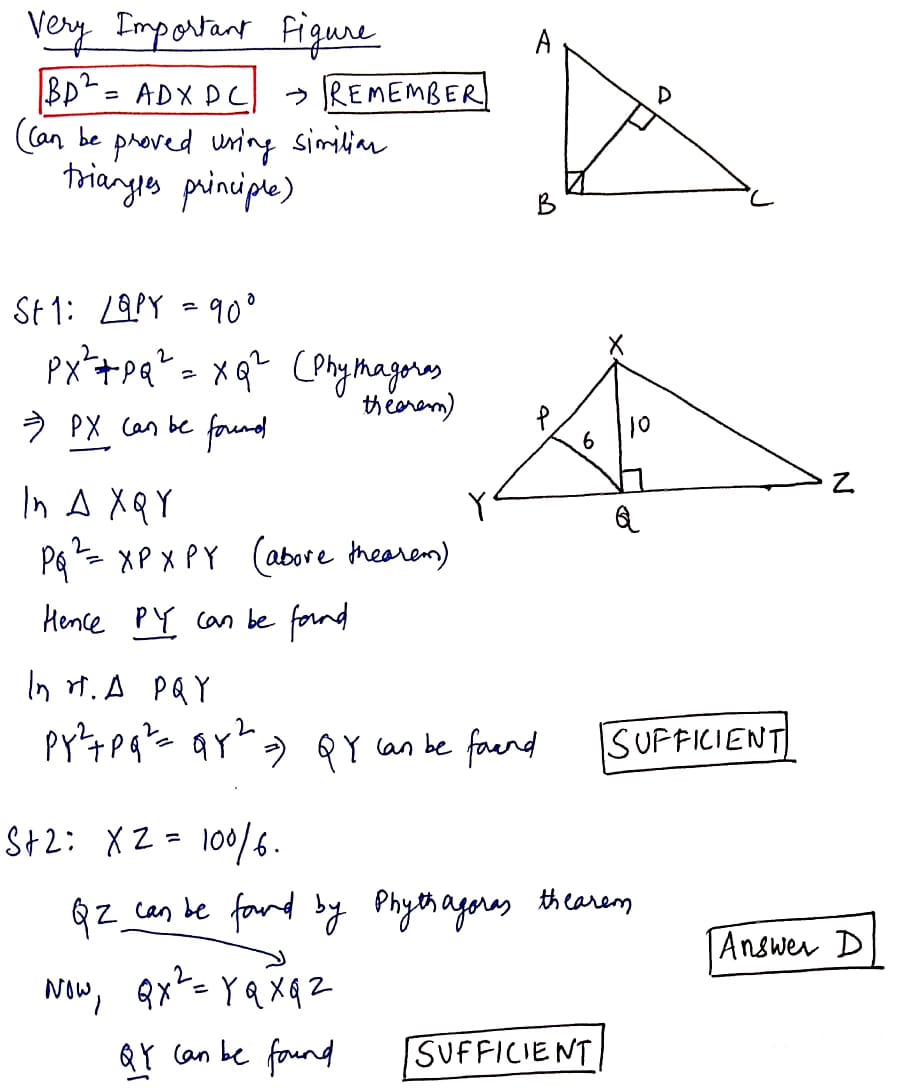 Very Important Figure
BD² = AD X DC → REMEMBER
(Can be proved using similiar
triangles principle)
A
D
B
C
St 1: ∠QPY = 90°
PX² + PQ² = XQ² (Phythagoras
thearem)
⇒ PX can be found
X
P
6
10
Y
Q
Z
In Δ XQY
PQ² = XP X PY (above thearem)
Hence PY can be found
In rt. Δ PQY
PY² + PQ² = QY² ⇒ QY can be faund
SUFFICIENT
St 2: XZ = 100/6.
QZ can be found by Phythagoras thearem
Answer D
Now, QX² = YQ X QZ
QY can be found
SUFFICIENT